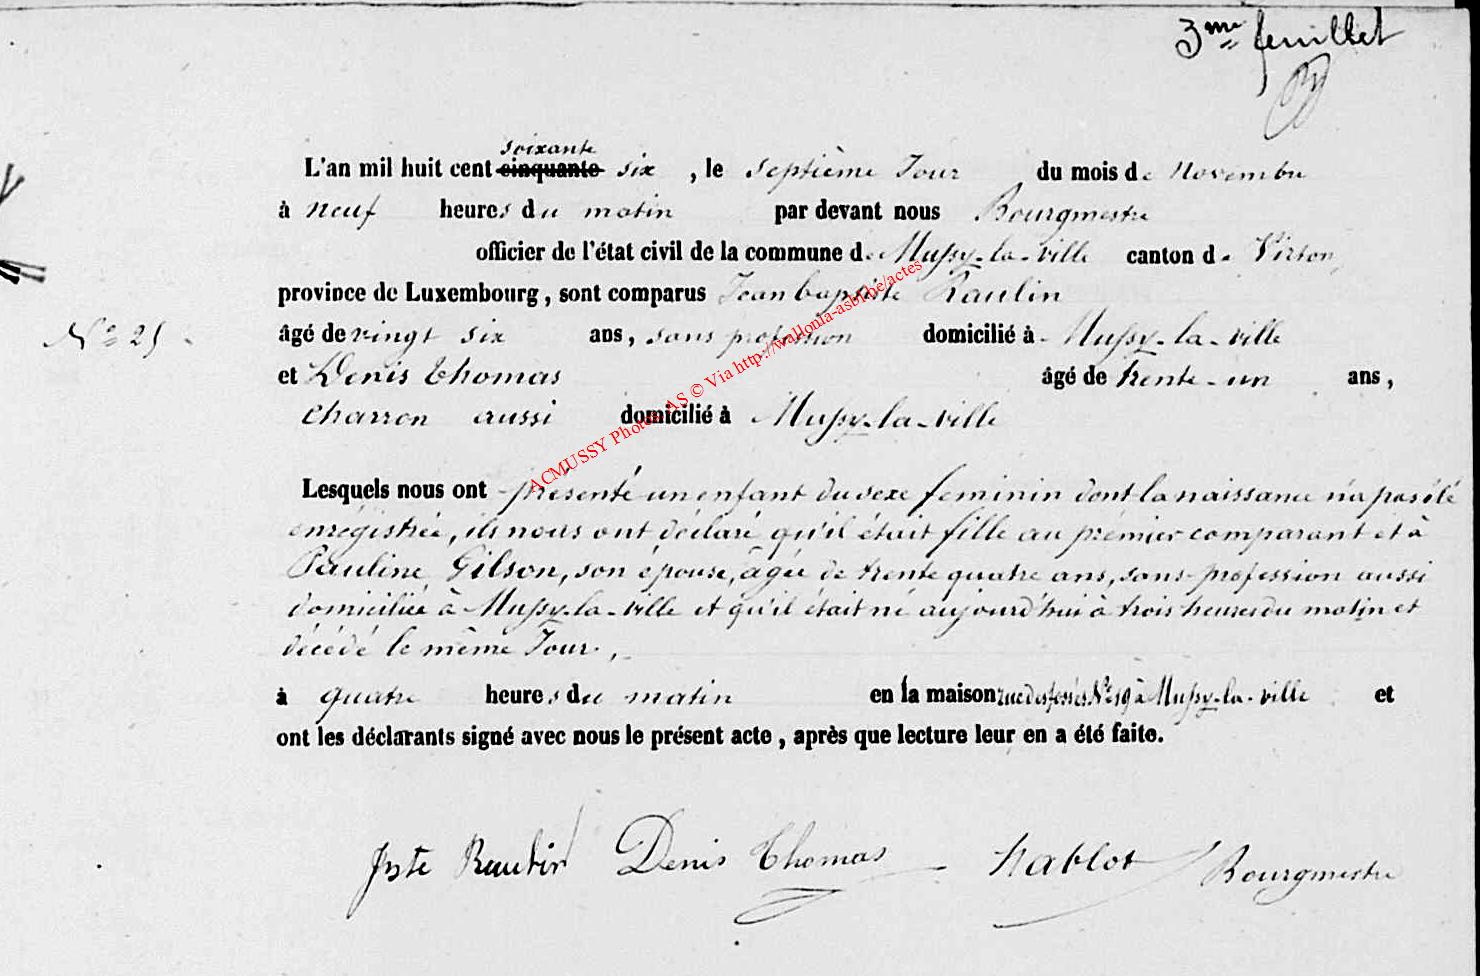 3me feuillet
L'an mil huit cent cinquante soixante six, le septième Jour du mois de Novembre
à neuf heures du matin par devant nous Bourgmestre
officier de l'état civil de la commune de Mussy-la-ville canton de Virton,
province de Luxembourg, sont comparus Jean baptiste Raulin
No 25 âgé de vingt six ans, sans profession domicilié à Mussy-la-ville
et Denis Thomas âgé de trente-un ans,
charron aussi domicilié à Mussy-la-ville
ACMUSSY Photos AS © Via http://wallonia-asbl.be/actes
Lesquels nous ont présenté un enfant du sexe feminin dont la naissance n'a pas été
enrégistrée, ils nous ont déclaré qu'il était fille au prémier comparant et à
Pauline Gilson, son épouse, âgée de trente quatre ans, sans profession aussi
domiciliée à Mussy-la-ville et qu'il était né aujourd'hui à trois heures du matin et
décédé le même Jour,
à quatre heures du matin en la maison rue des fossés No 19 à Mussy-la-ville et
ont les déclarants signé avec nous le présent acte, après que lecture leur en a été faite.
Jbte Raulin Denis Thomas Nablot Bourgmestre